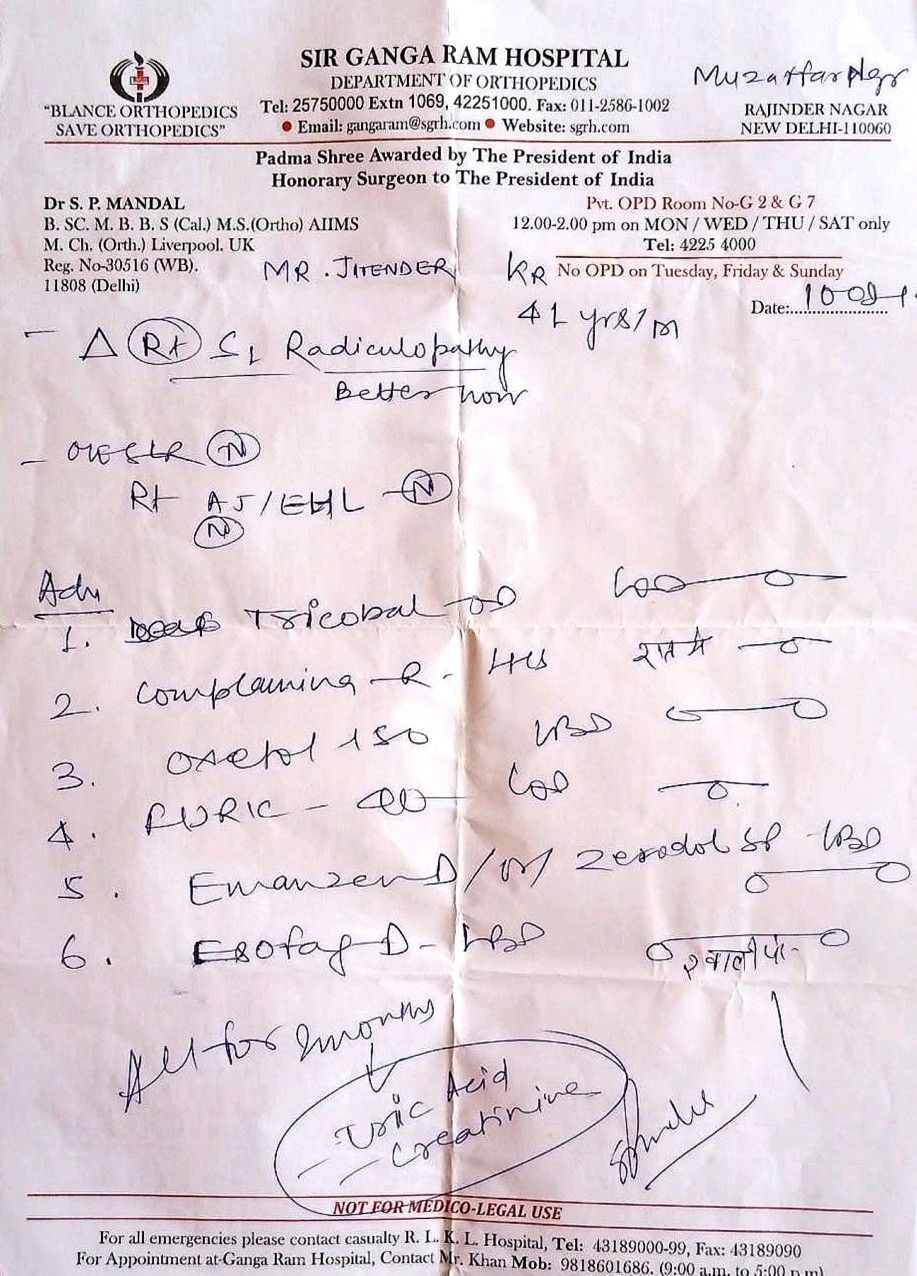 SIR GANGA RAM HOSPITAL
DEPARTMENT OF ORTHOPEDICS
Tel: 25750000 Extn 1069, 42251000. Fax: 011-2586-1002
● Email: gangaram@sgrh.com ● Website: sgrh.com
"BLANCE ORTHOPEDICS
SAVE ORTHOPEDICS"
RAJINDER NAGAR
NEW DELHI-110060
Padma Shree Awarded by The President of India
Honorary Surgeon to The President of India
Dr S. P. MANDAL
B. SC. M. B. B. S (Cal.) M.S.(Ortho) AIIMS
M. Ch. (Orth.) Liverpool. UK
Reg. No-30516 (WB).
11808 (Delhi)
Pvt. OPD Room No-G 2 & G 7
12.00-2.00 pm on MON / WED / THU / SAT only
Tel: 4225 4000
No OPD on Tuesday, Friday & Sunday
MR. JITENDER KR
Date:
yrs/m
- Δ Rt S1 Radiculopathy
Better now
- SLR N
Rt AJ/EHL - N
N
Adv
1. Tricobal - OD
2. Complamina - R - HS रात में
3. Oxetol 150 BD
4. FURIC - 40
5. Emanzen D / or / Zerodol SP - BD
6. Esofag D - BD
All for 2 months
- Uric Acid
- Creatinine
NOT FOR MEDICO-LEGAL USE
For all emergencies please contact casualty R. L. K. L. Hospital, Tel: 43189000-99, Fax: 43189090
For Appointment at-Ganga Ram Hospital, Contact Mr. Khan Mob: 9818601686. (9:00 a.m. to 5:00 p.m)